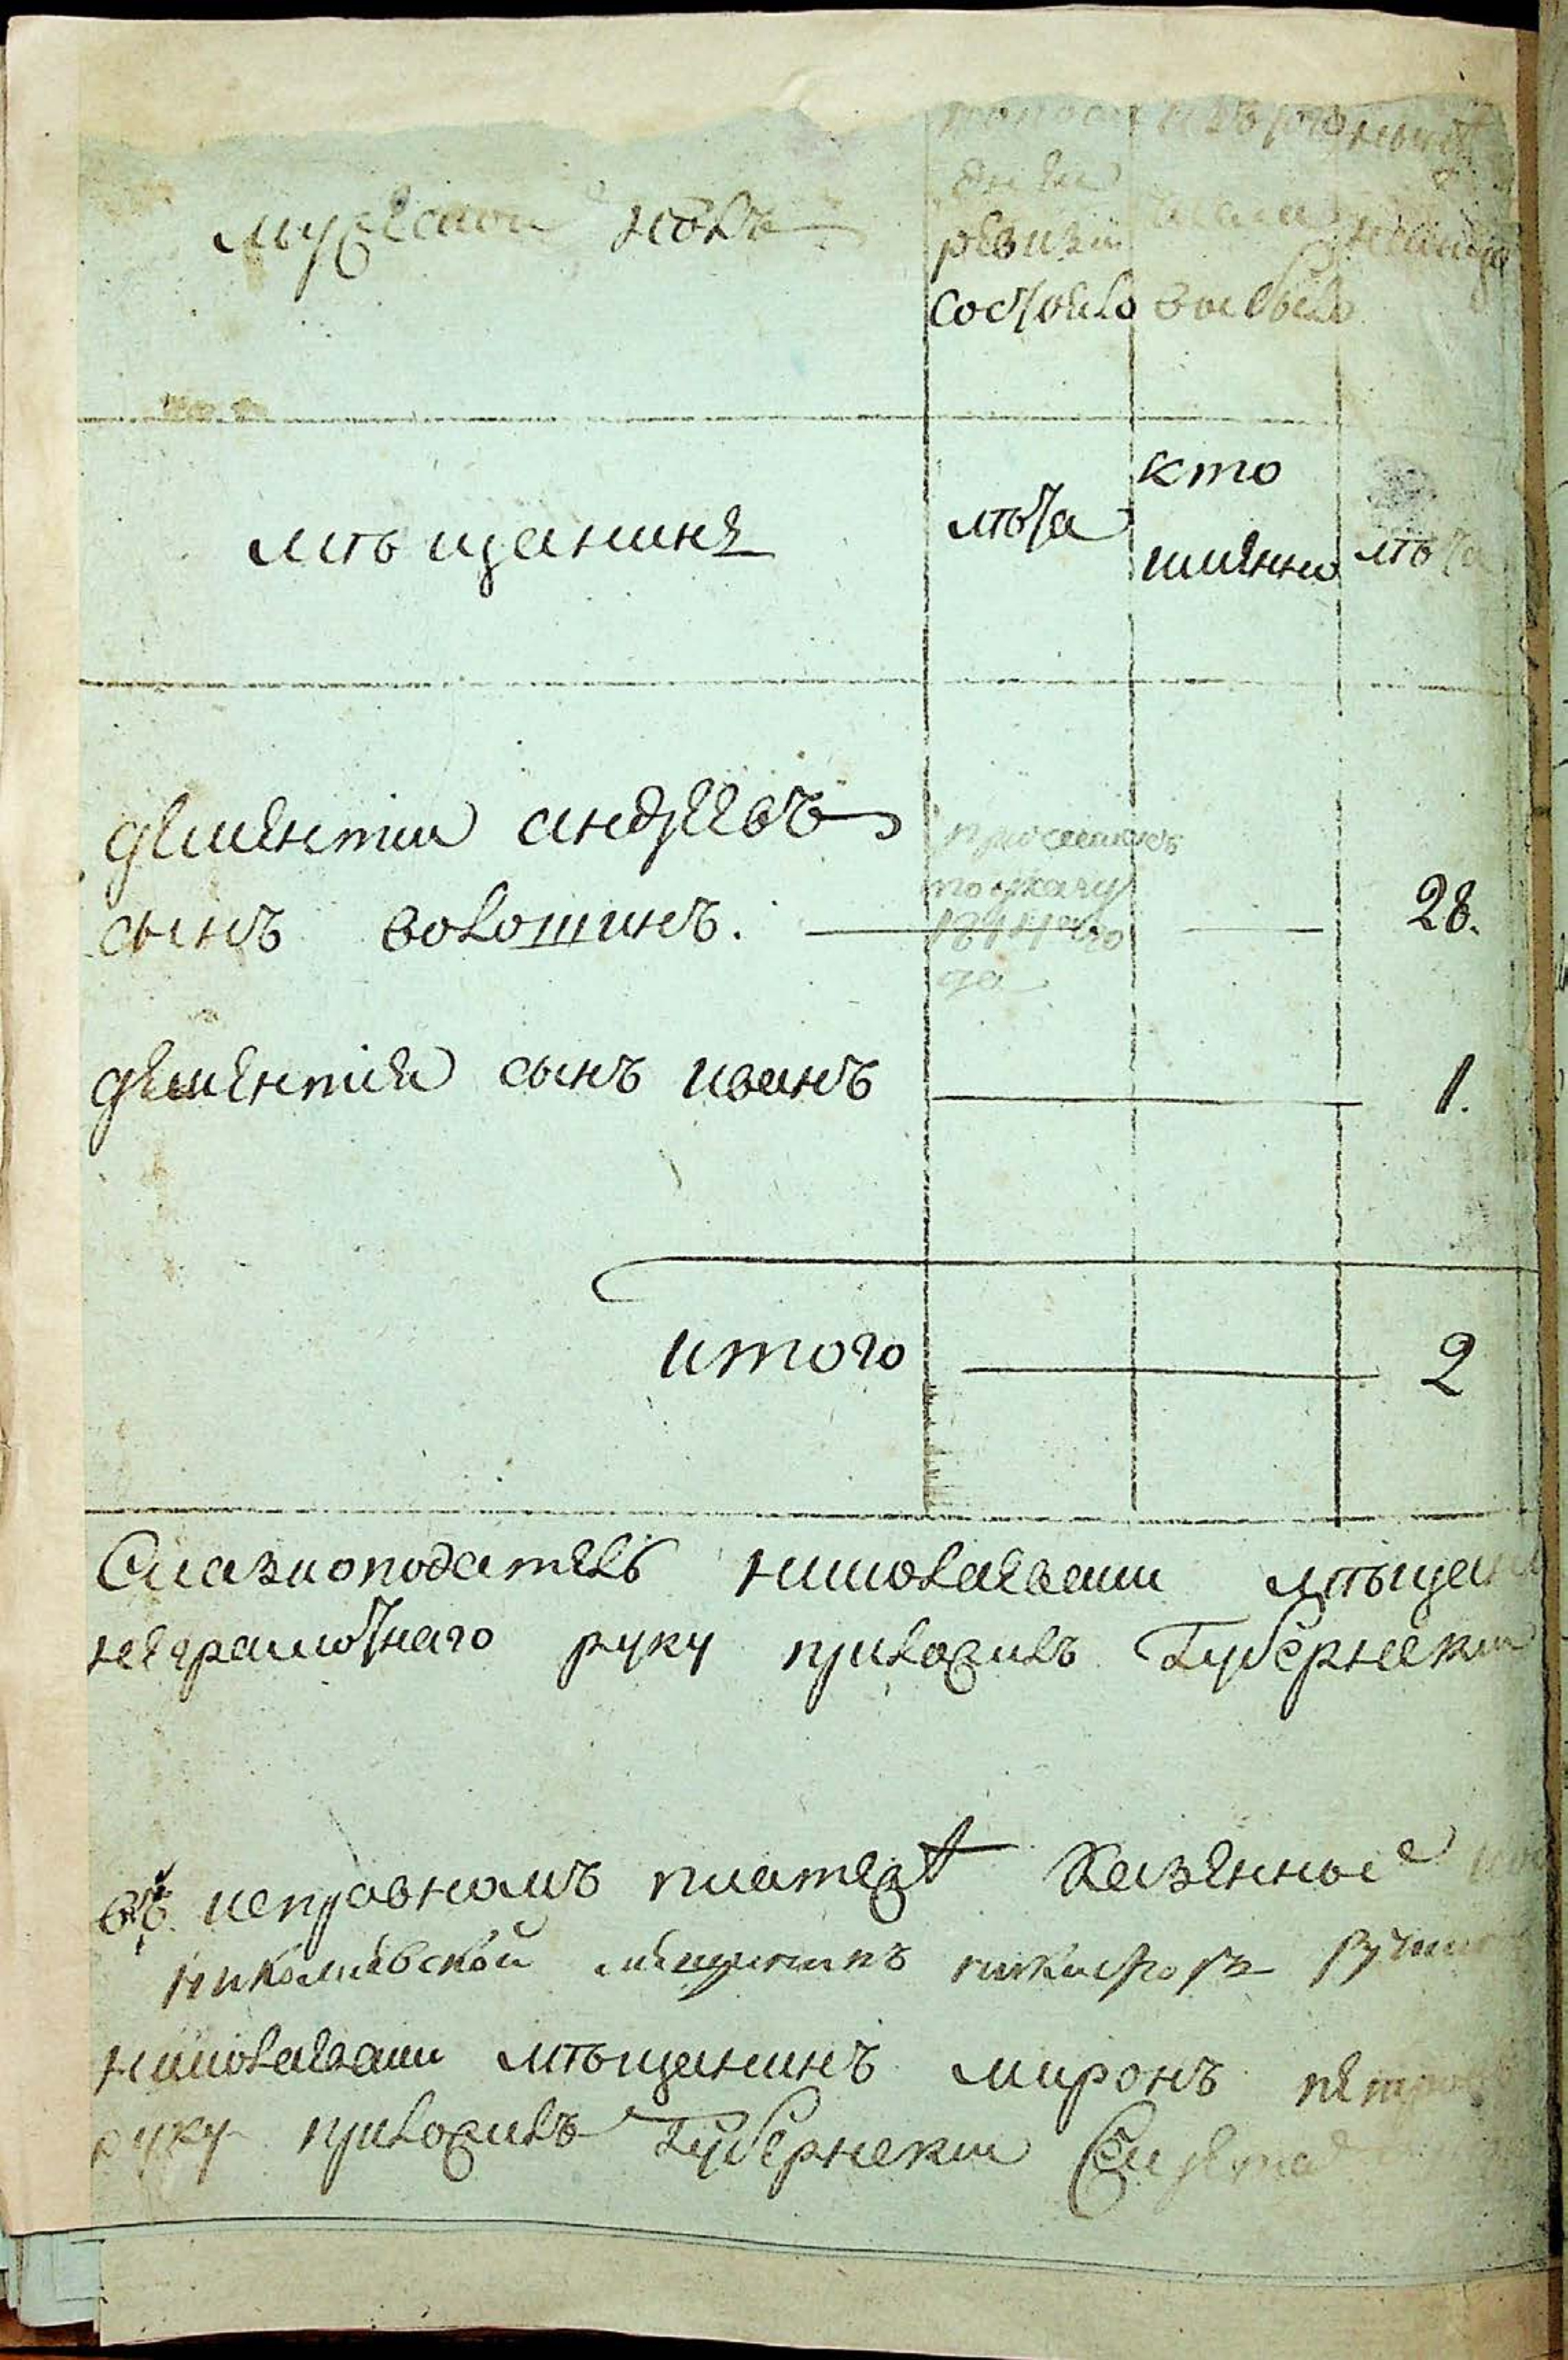 мужеской полъ
по последней
ревизіи
состояло
изъ того
числа
выбыло
ныне
на лицо
мѣщанинѣ
лѣта
кто
имянно
лѣта
дементии андреевъ
сынъ волошинъ.
по указу
1811го го
да
28.
дементия сынъ иванъ
1.
итого
2
Сказкоподатель николаевски мѣщани
неграмотнаго руку приложилъ Губернски
въ исправномъ платежѣ казенные
николаевской мещанинъ никифоръ
николаевски мѣщанинъ миронъ петро
руку приложилъ Губернски Секрета